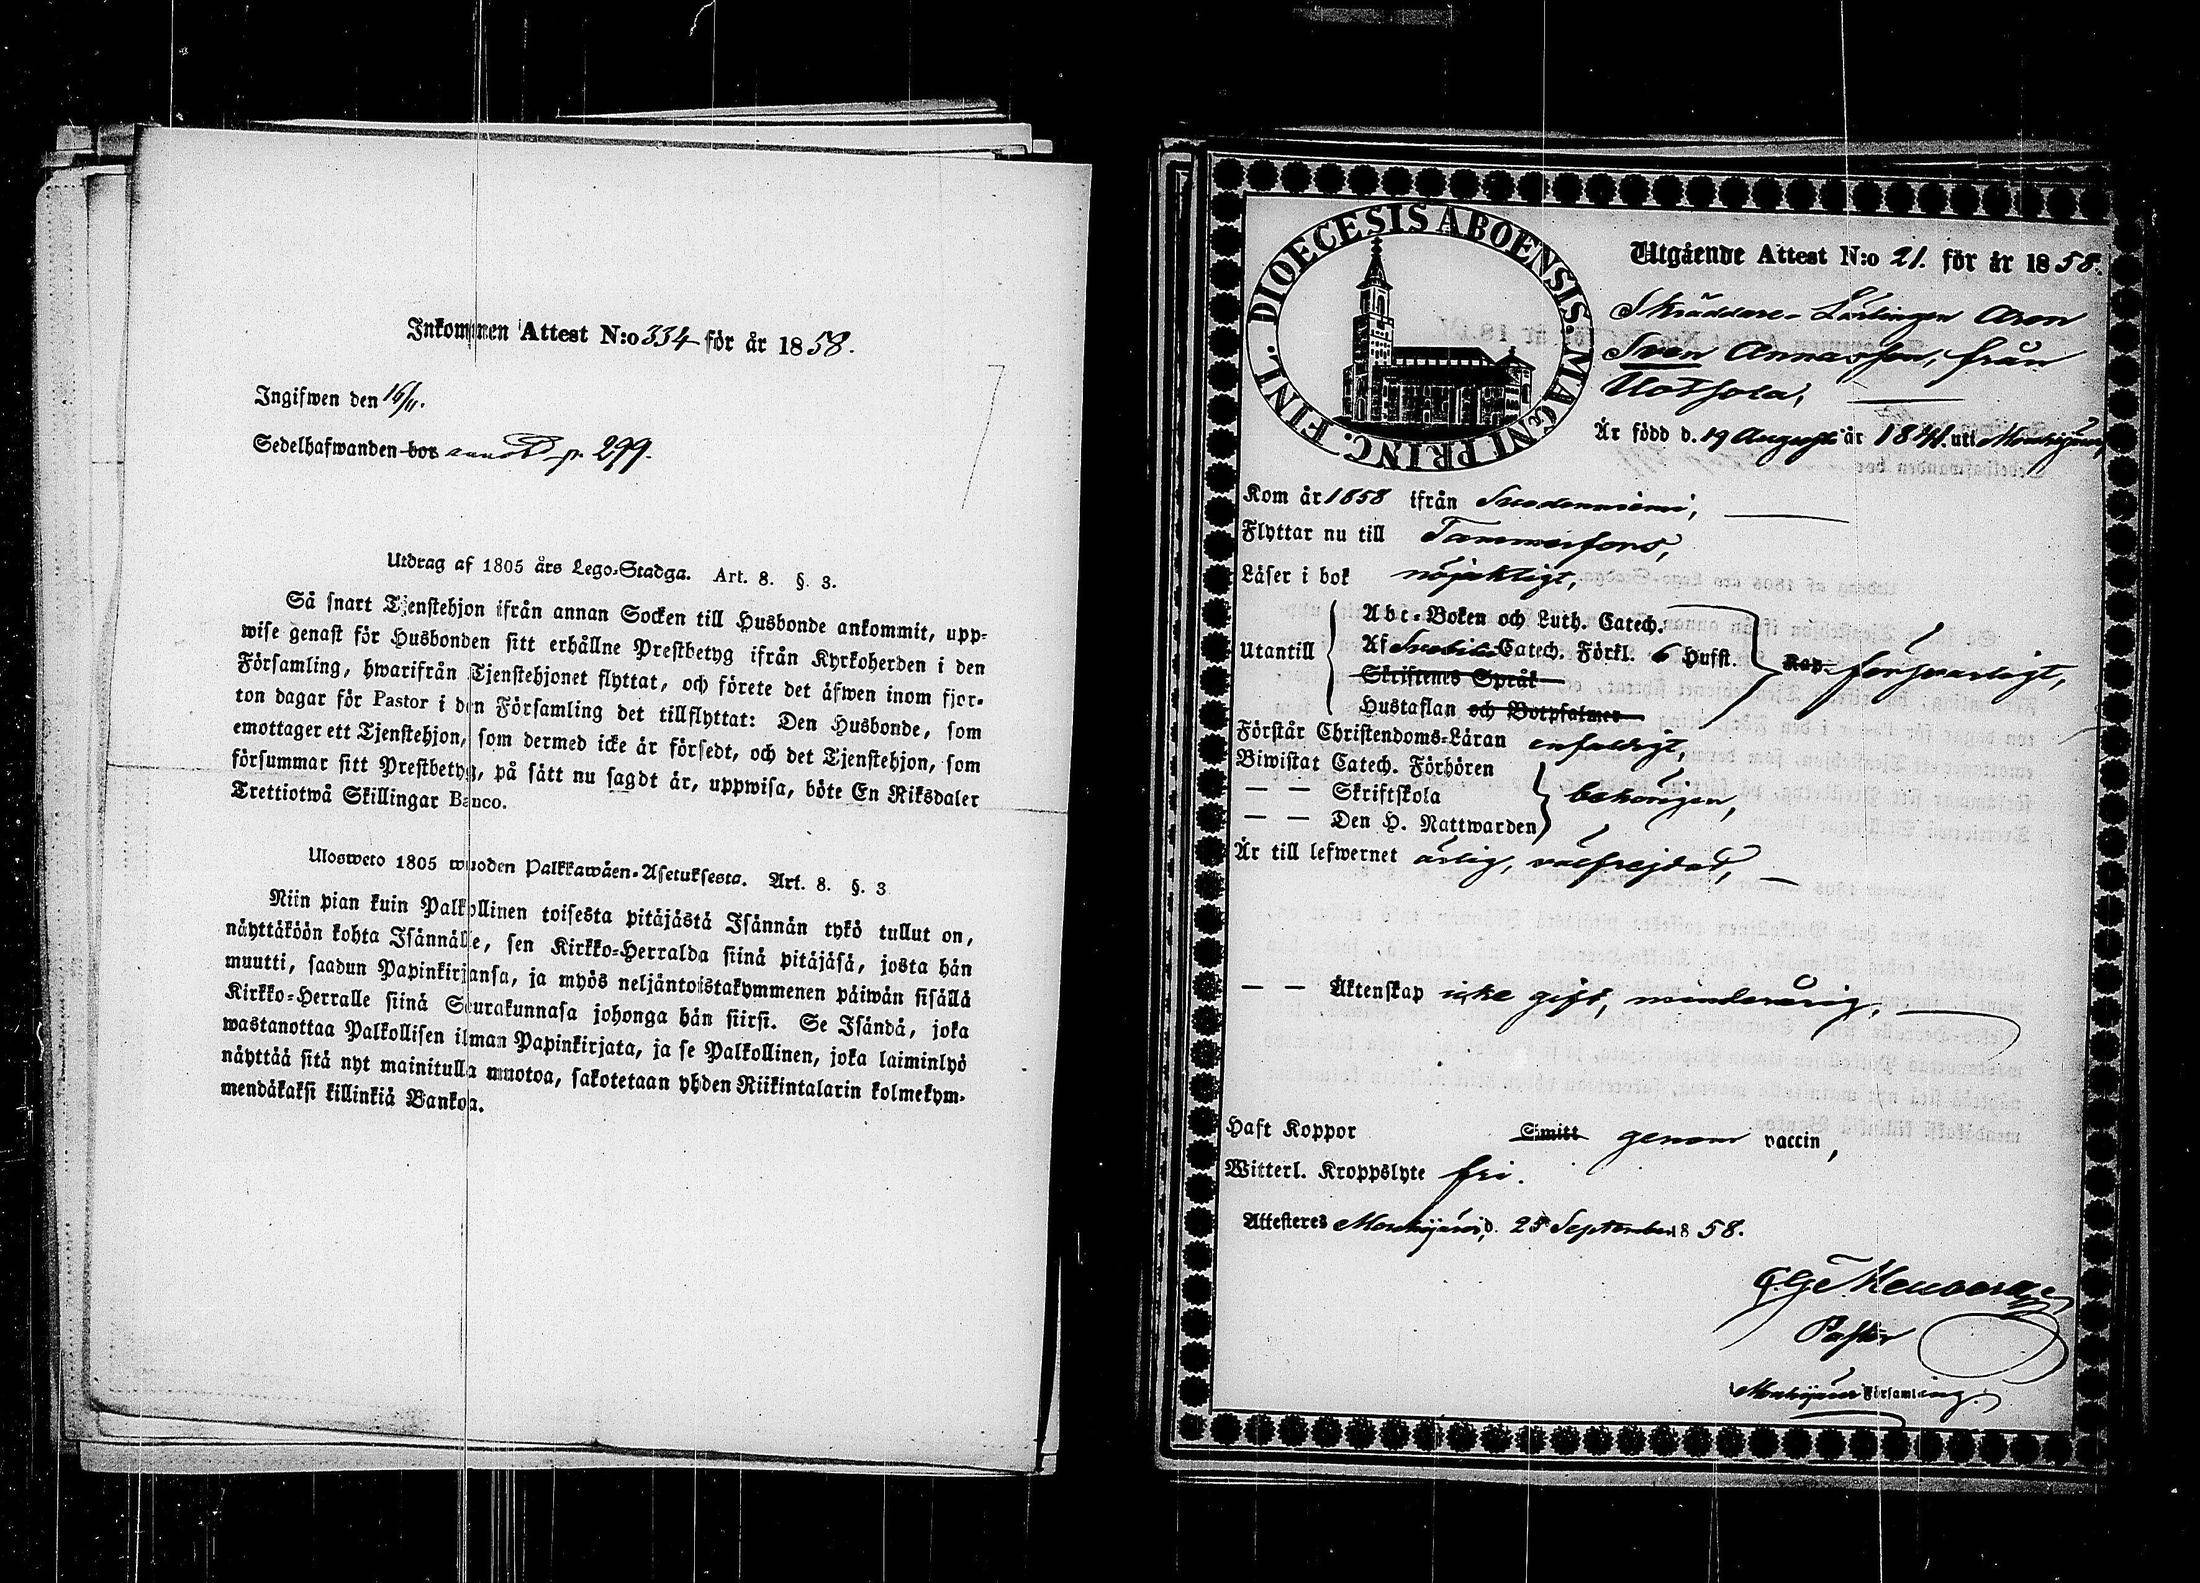 Inkommen Attest N:o 334 för år 1858.
Ingifwen den 16/11.
Sedelhafwanden bor p. 299.
Utdrag af 1805 års Lego-Stadga. Art. 8. §. 3.
Så snart Tjenstehjon ifrån annan Socken till Husbonde ankommit, upp-
wise genast för Husbonden sitt erhållne Prestbetyg ifrån Kyrkoherden i den
Församling, hwarifrån Tjenstehjonet flyttat, och förete det äfwen inom fjor-
ton dagar för Pastor i den Församling det tillflyttat: Den Husbonde, som
emottager ett Tjenstehjon, som dermed icke är försedt, och det Tjenstehjon, som
försummar sitt Prestbetyg, på sätt nu sagdt är, uppwisa, böte En Riksdaler
Trettiotwå Skillingar Banco.
Ulosweto 1805 wuoden Palkkawäen-Asetuksesta. Art. 8. §. 3
Niin pian kuin Palkollinen toisesta pitäjästä Isännän tykö tullut on,
näyttäköön kohta Isännälle, sen Kirkko-Herralda siinä pitäjäsä, josta hän
muutti, saadun Papinkirjansa, ja myös neljäntoistakymmenen päiwän sisällä
Kirkko-Herralle siinä Seurakunnasa johonga hän siirsi. Se Isändä, joka
wastanottaa Palkollisen ilman Papinkirjata, ja se Palkollinen, joka laiminlyö
näyttää sitä nyt mainitulla muotoa, sakotetaan yhden Riikintalarin kolmekym-
mendäkaksi killinkiä Bankoa.
DIOECESIS ABOENSIS. MAGNI PRINC. FINL.
Utgående Attest N:o 21. för år 1858.
Skräddare-Lärlingen Aron
Sven Annasson, från
Uotsola,
Är född d. 19 August är 1841. uti Mouhijärvi,
Kom år 1858 ifrån Suodenniemi,
Flyttar nu till Tammerfors,
Läser i bok nöjaktigt,
Abc-Boken och Luth. Catech.
Utantill Af Svebilii Catech. Förkl. 6 Hufst. Kap. försvarligt,
Skriftenes Språk
Hustaflan och Botpsalmer
Förstår Christendoms-Läran enfaldigt,
Biwistat Catech. Förhören
— — Skriftskola behörigen,
— — Den H. Nattwarden
Är till lefwernet ärlig, välfrejdad,
— — Äktenskap icke gift, minderårig,
Haft Koppor Smitt genom vaccin,
Witterl. Kroppslyte fri.
Attesteres Mouhijärvi, d. 25 September 1858.
Pastor
Mouhijärvi Församling.